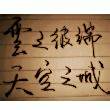 雲之彼端
天空之城